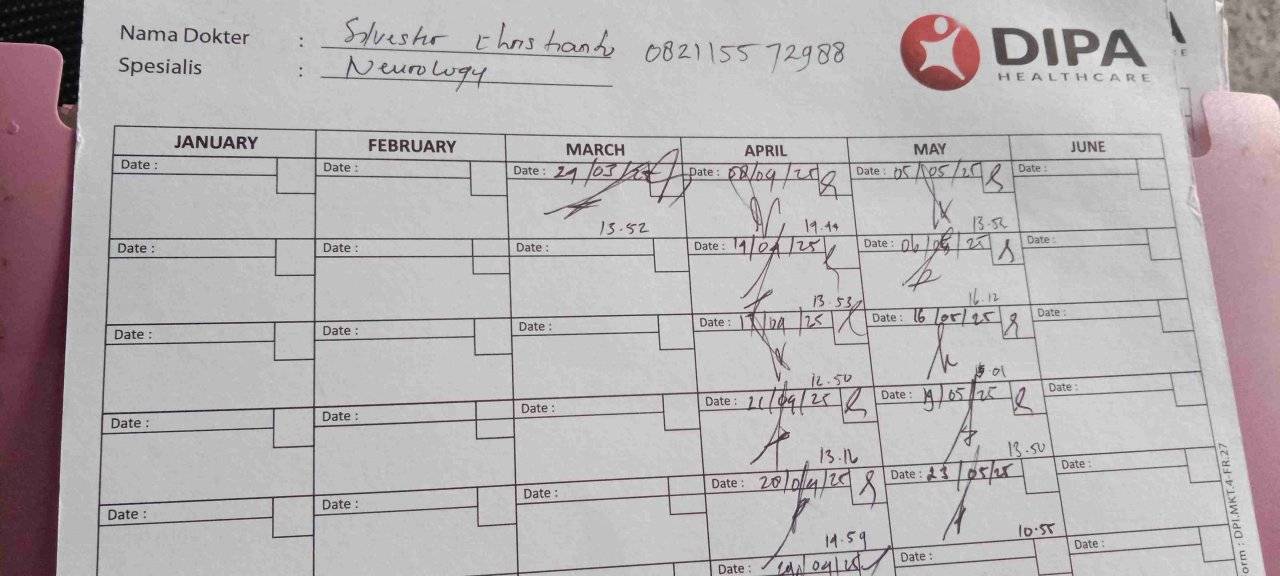 Nama Dokter : Silvester Christianto 082115572988
Spesialis : Neurology
DIPA
HEALTHCARE
JANUARY FEBRUARY MARCH APRIL MAY JUNE
Date : Date : Date : 29/03/25 Date : 08/04/25 Date : 05/05/25 Date :
13.52 14.44 13.56
Date : Date : Date : Date : 14/04/25 Date : 06/05/25 Date :
13.53 16.12
Date : Date : Date : Date : 17/04/25 Date : 16/05/25 Date :
12.50 15.01
Date : Date : Date : Date : 21/04/25 Date : 19/05/25 Date :
13.16 13.50
Date : Date : Date : Date : 28/04/25 Date : 23/05/25 Date :
14.59 10.55
Date : 29/04/25 Date : Date :
orm : DPI.MKT.4-FR.27